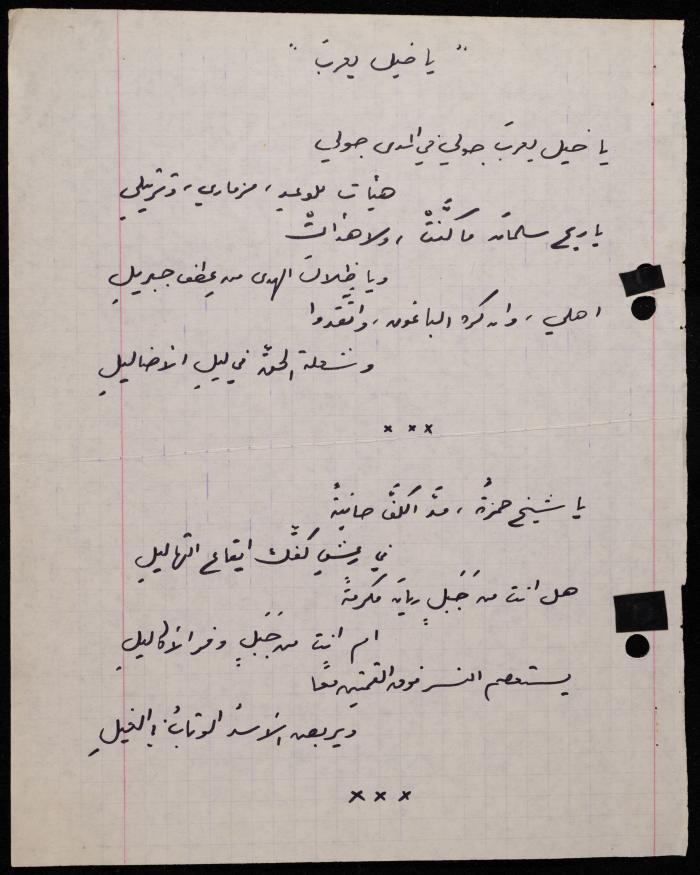 " يا خيل يعرب "
يا خيل يعربَ جولي في المدى جولي
هيأت للوعيدِ، مزماري، وترتيلي
يا ريح سلمان ما كَنَّتْ، ولا هدأتْ
ويا ظِلالَ الهدى من عِطفِ جبريلِ
اهلي، وان كره الباغون، واتّقدوا
وشعلة الحقّ في ليلِ الأضاليلِ
× × ×
يا شيخ حمزةُ، مدّ الكفَّ حانيةً
في كفّك ايقاع التهاليلِ
هل انت من جَبَلٍ ريان مكرمةً
ام انتِ من جَبَلٍ وفر الأكاليلِ
يستعصم النسر فوق القمتين معًا
ويربض الأسدُ الوثابُ في الغيلِ
× × ×